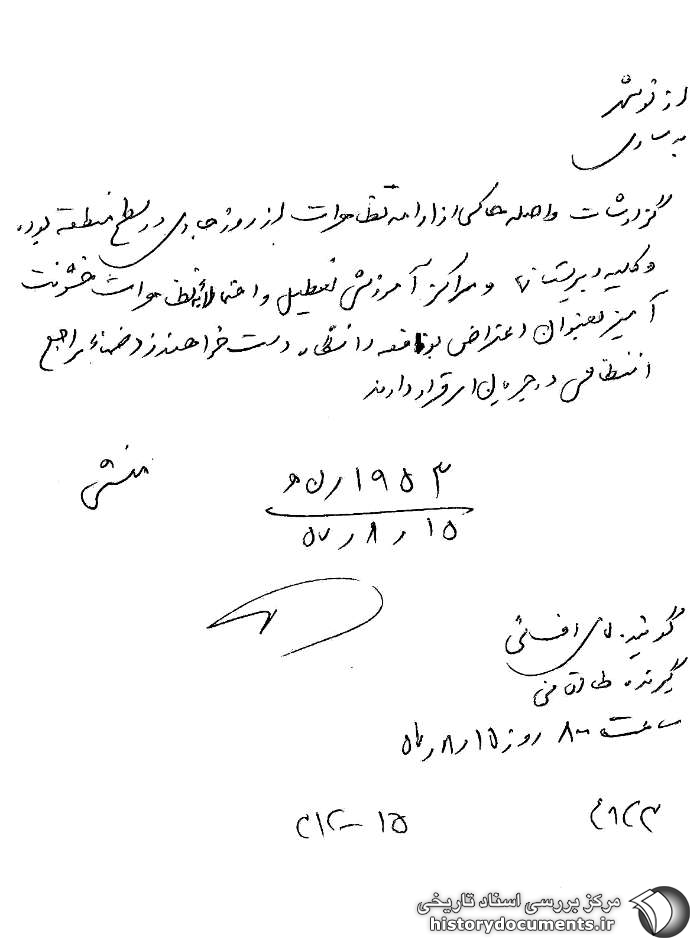 از نوشهر
به ساری
گزارشات واصله حاکی از ادامه تظاهرات از روز جاری در سطح منطقه بوده
و کلیه دبیرستانها و مراکز آموزشی تعطیل و احتمالاً به تظاهرات خشونت
آمیز بعنوان اعتراض بواقعه دانشگاه دست خواهند زد ضمناً مراجع
انتظامی در جریان قرار دارند
منشی
۱۹۵۳/ن ه
۱۵/۸/۵۷
گوینده
گیرنده طالقانی
ساعت ۸۰۰ روز ۱۵/۸/۵۷
۱۵-
مرکز بررسی اسناد تاریخی
historydocuments.ir